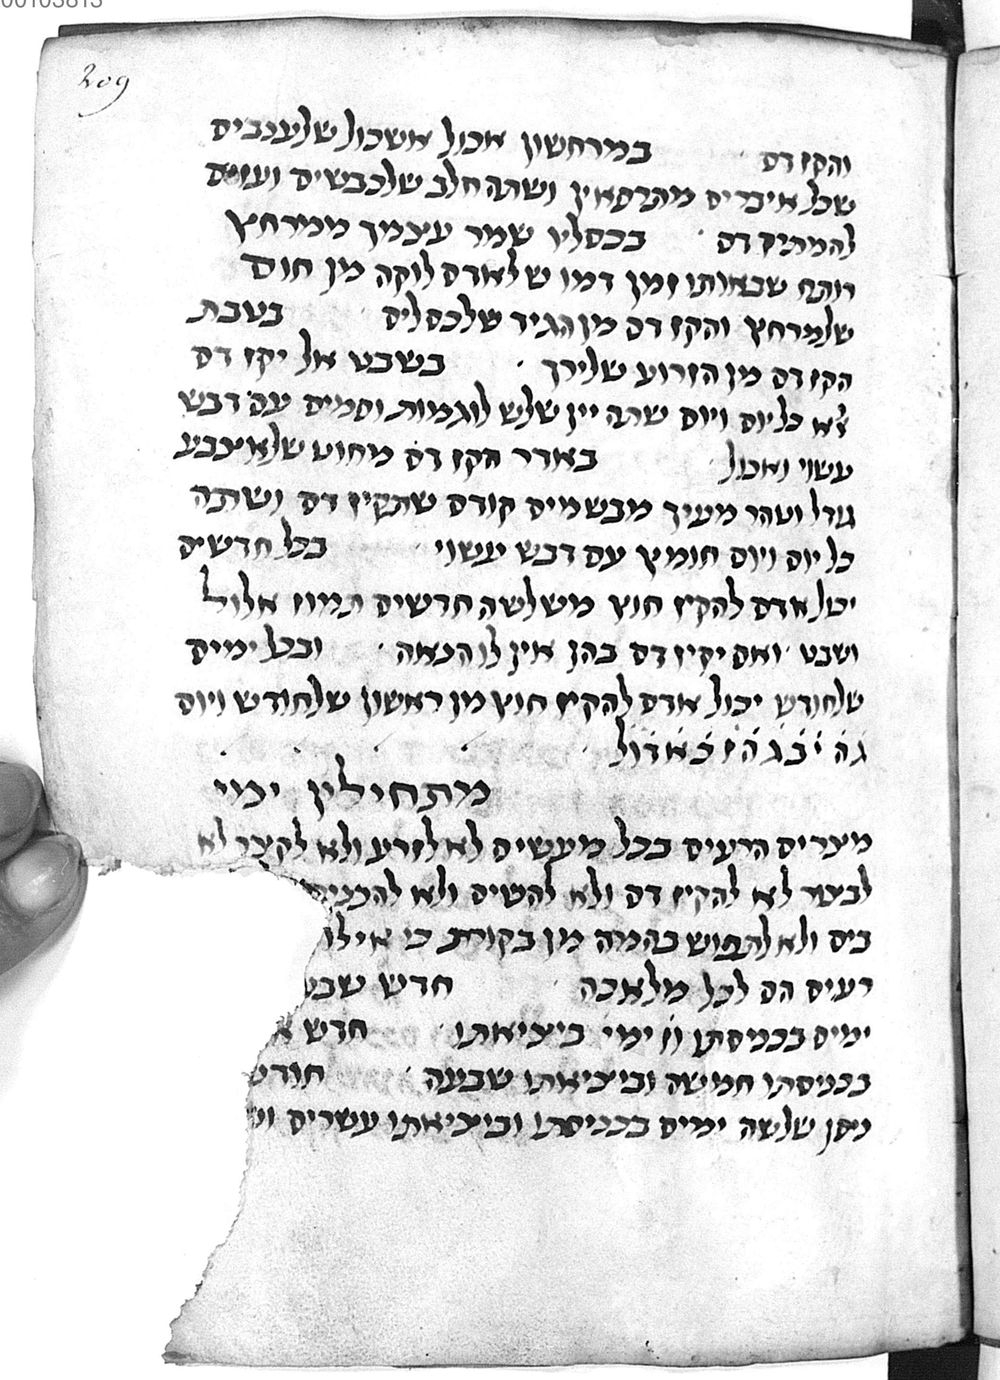 00103813
209
והקז דם במרחשון אכול אשכול שלענבים
שכל איברים מתרפאין ושתה חלב שלכבשים ועזים
להמתיק דם בכסליו שמר עצמך ממרחץ
רותח שבאותו זמן דמו שלאדם לוקה מן חום
שלמרחץ והקז דם מן הגיד שלכסלים בטבת
הקז דם מן הזרוע שלירך בשבט אל יקז דם
כל יום ויום שתה יין שלש לוגמות וסמים עם דבש
עשוי ואכול באדר הקז דם מחוט שלאצבע
גודל וטהר מעיך מבשמים קודם שתקיז דם ושתה
כל יום ויום חומץ עם דבש עשוי בכל חדשים
יכול אדם להקיז חוץ משלשה חדשים תמוז אלול
ושבט ואם יקיז דם בהן אין לו הנאה ובכל ימים
שלחודש יכול אדם להקיז חוץ מן ראשון שלחודש ויום
מתחילין ימי
מצרים הרעים בכל מעשים לא לזרע ולא לקצר לא
לבצור לא להקיז דם ולא להטיס ולא להכניס
בים ולא לתפוש בהמה מן בקורת כי אילו
רעים הם לכל מלאכה חדש שבט
ימים בכניסתו וז ימי ביציאתו חדש א
בכניסתו חמישה וביציאתו שבעה חודש
ניסן שלשה ימים בכניסתו וביציאתו עשרים וש